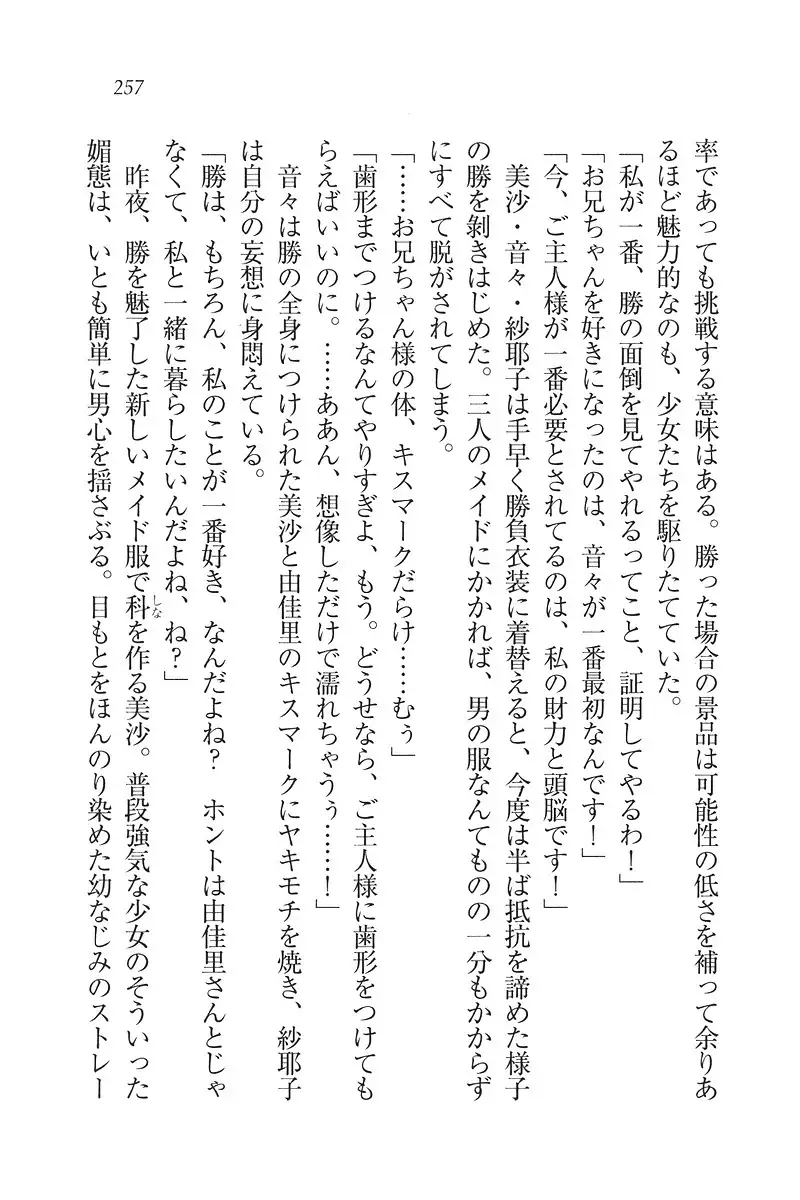 257
率であっても挑戦する意味はある。勝った場合の景品は可能性の低さを補って余りあ
るほど魅力的なのも、少女たちを駆りたてていた。
「私が一番、勝の面倒を見てやれるってこと、証明してやるわ!」
「お兄ちゃんを好きになったのは、音々が一番最初なんです!」
「今、ご主人様が一番必要とされてるのは、私の財力と頭脳です!」
美沙・音々・紗耶子は手早く勝負衣装に着替えると、今度は半ば抵抗を諦めた様子
の勝を剥きはじめた。三人のメイドにかかれば、男の服なんてものの一分もかからず
にすべて脱がされてしまう。
「……お兄ちゃん様の体、キスマークだらけ……むぅ」
「歯形までつけるなんてやりすぎよ、もう。どうせなら、ご主人様に歯形をつけても
らえばいいのに。……ああん、想像しただけで濡れちゃうぅ……!」
音々は勝の全身につけられた美沙と由佳里のキスマークにヤキモチを焼き、紗耶子
は自分の妄想に身悶えている。
「勝は、もちろん、私のことが一番好き、なんだよね? ホントは由佳里さんとじゃ
なくて、私と一緒に暮らしたいんだよね、ね?」
昨夜、勝を魅了した新しいメイド服で科しなを作る美沙。普段強気な少女のそういった
媚態は、いとも簡単に男心を揺さぶる。目もとをほんのり染めた幼なじみのストレー